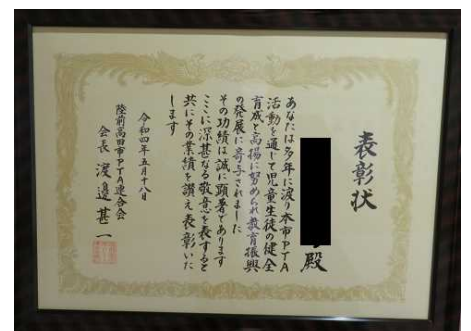 表彰状
殿
あなたは多年に渡り本市PTA
活動を通じて児童生徒の健全
育成と高揚に努められ教育振興
の発展に寄与されました
その功績は誠に顕著であります
ここに深甚なる敬意を表すると
共にその業績を讃え表彰いた
します
令和四年五月十八日
陸前高田市PTA連合会
会長 渡邉甚一